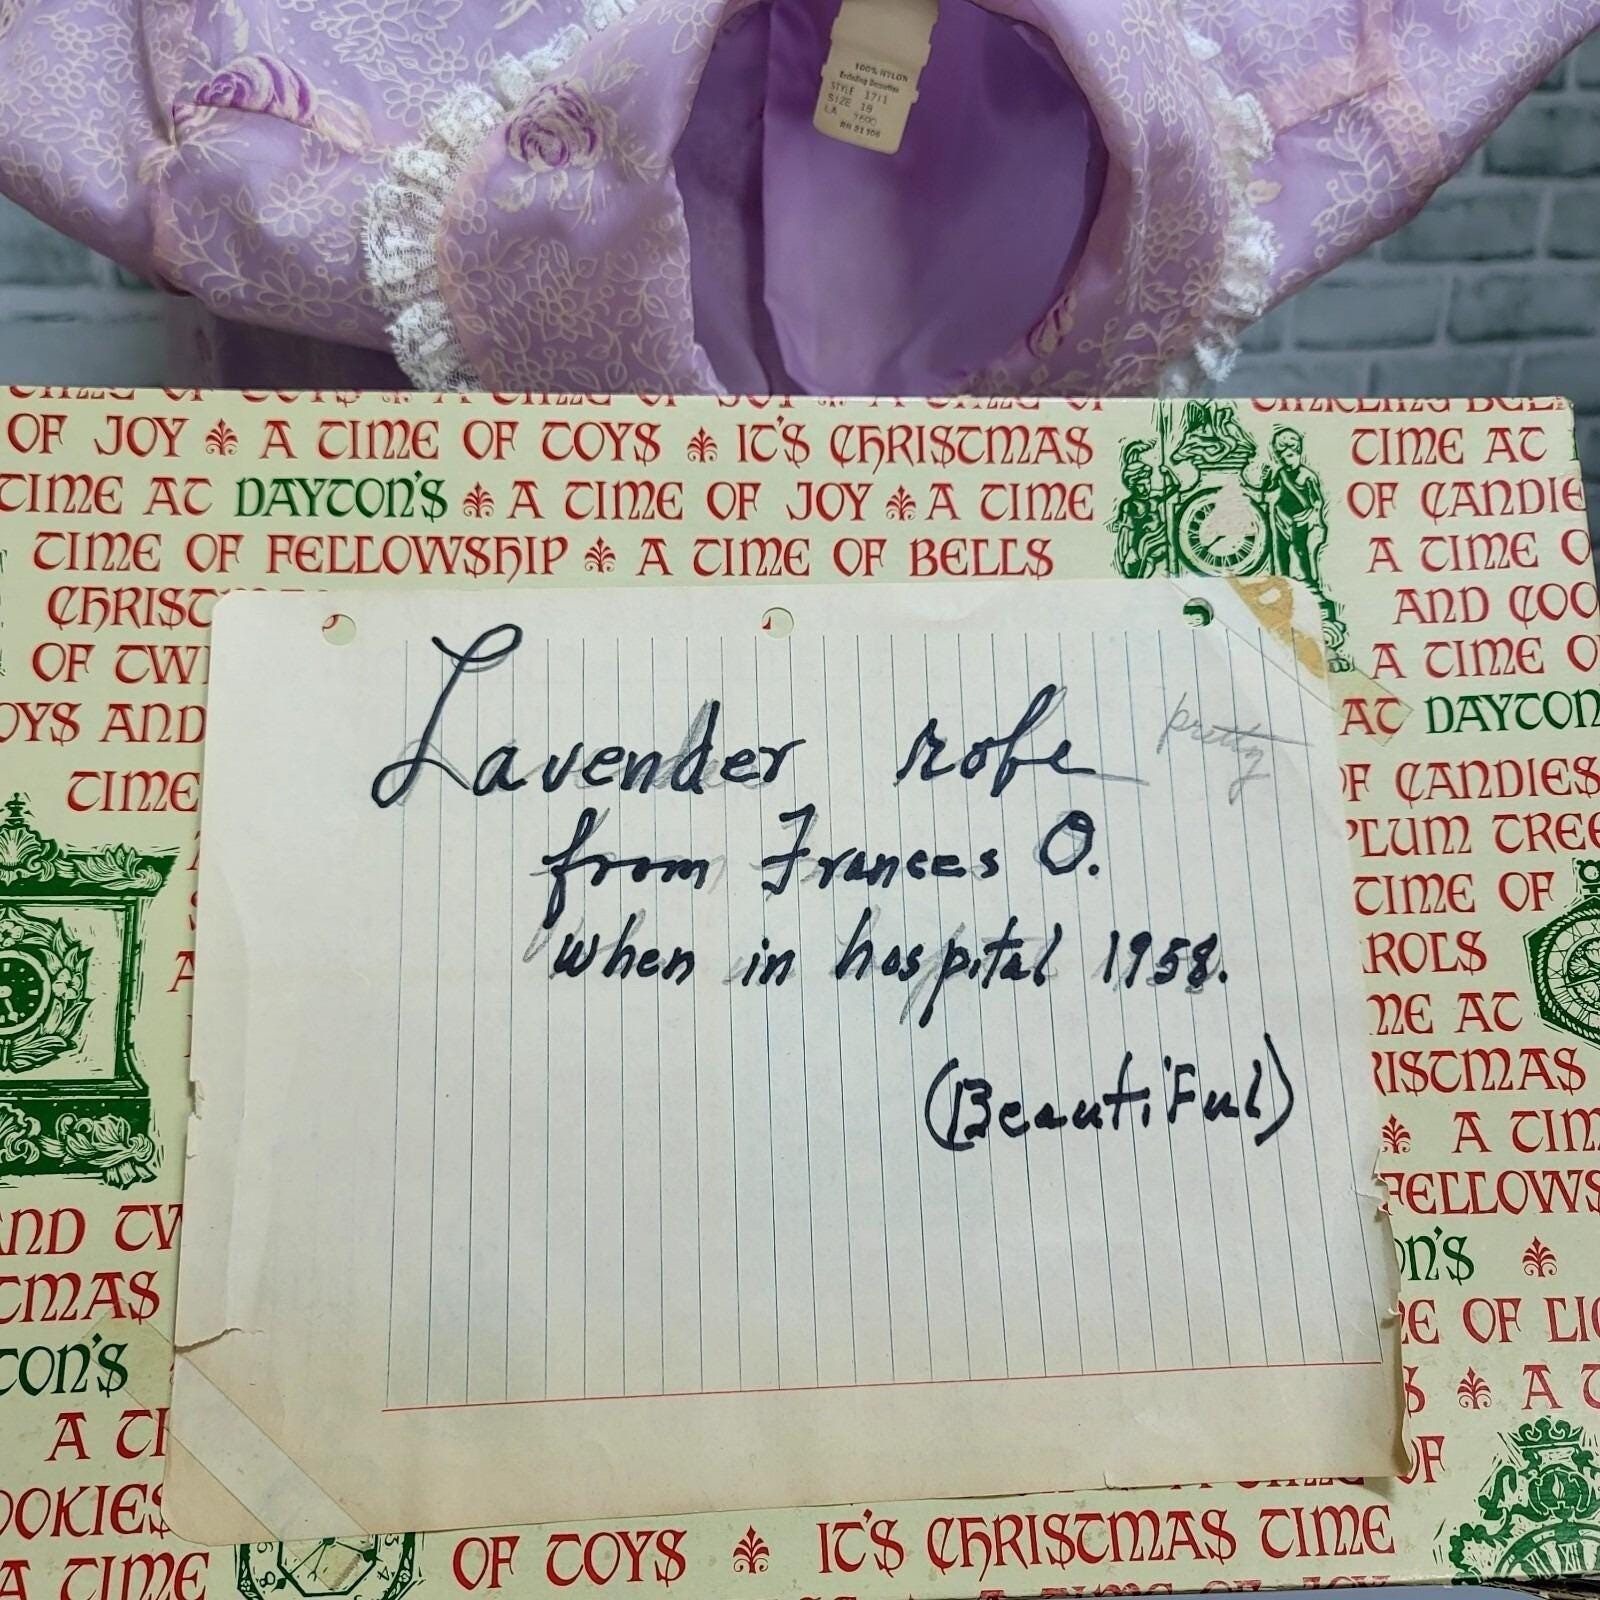 100% NYLON
Excluding Decoration
STYLE 1711
SIZE 18
LA 7600
RN 31106
OF JOY A TIME OF TOYS IT'S CHRISTMAS
TIME AT
TIME AT DAYTON'S A TIME OF JOY A TIME
OF CANDIE
TIME OF FELLOWSHIP A TIME OF BELLS
A TIME O
CHRIST
AND COO
OF TWI
A TIME O
OYS AND
AT DAYTON
TIME
OF CANDIES
PLUM TREE
TIME OF
AROLS
ME AT
RISTMAS
A TIM
FELLOWS
ON'S
E OF LIG
A T
OF
Lavender robe pretty
from Frances O.
when in hospital 1958.
(Beautiful)
AND TW
TMAS
TON'S
A TI
OOKIES
A TIME
OF TOYS IT'S CHRISTMAS TIME